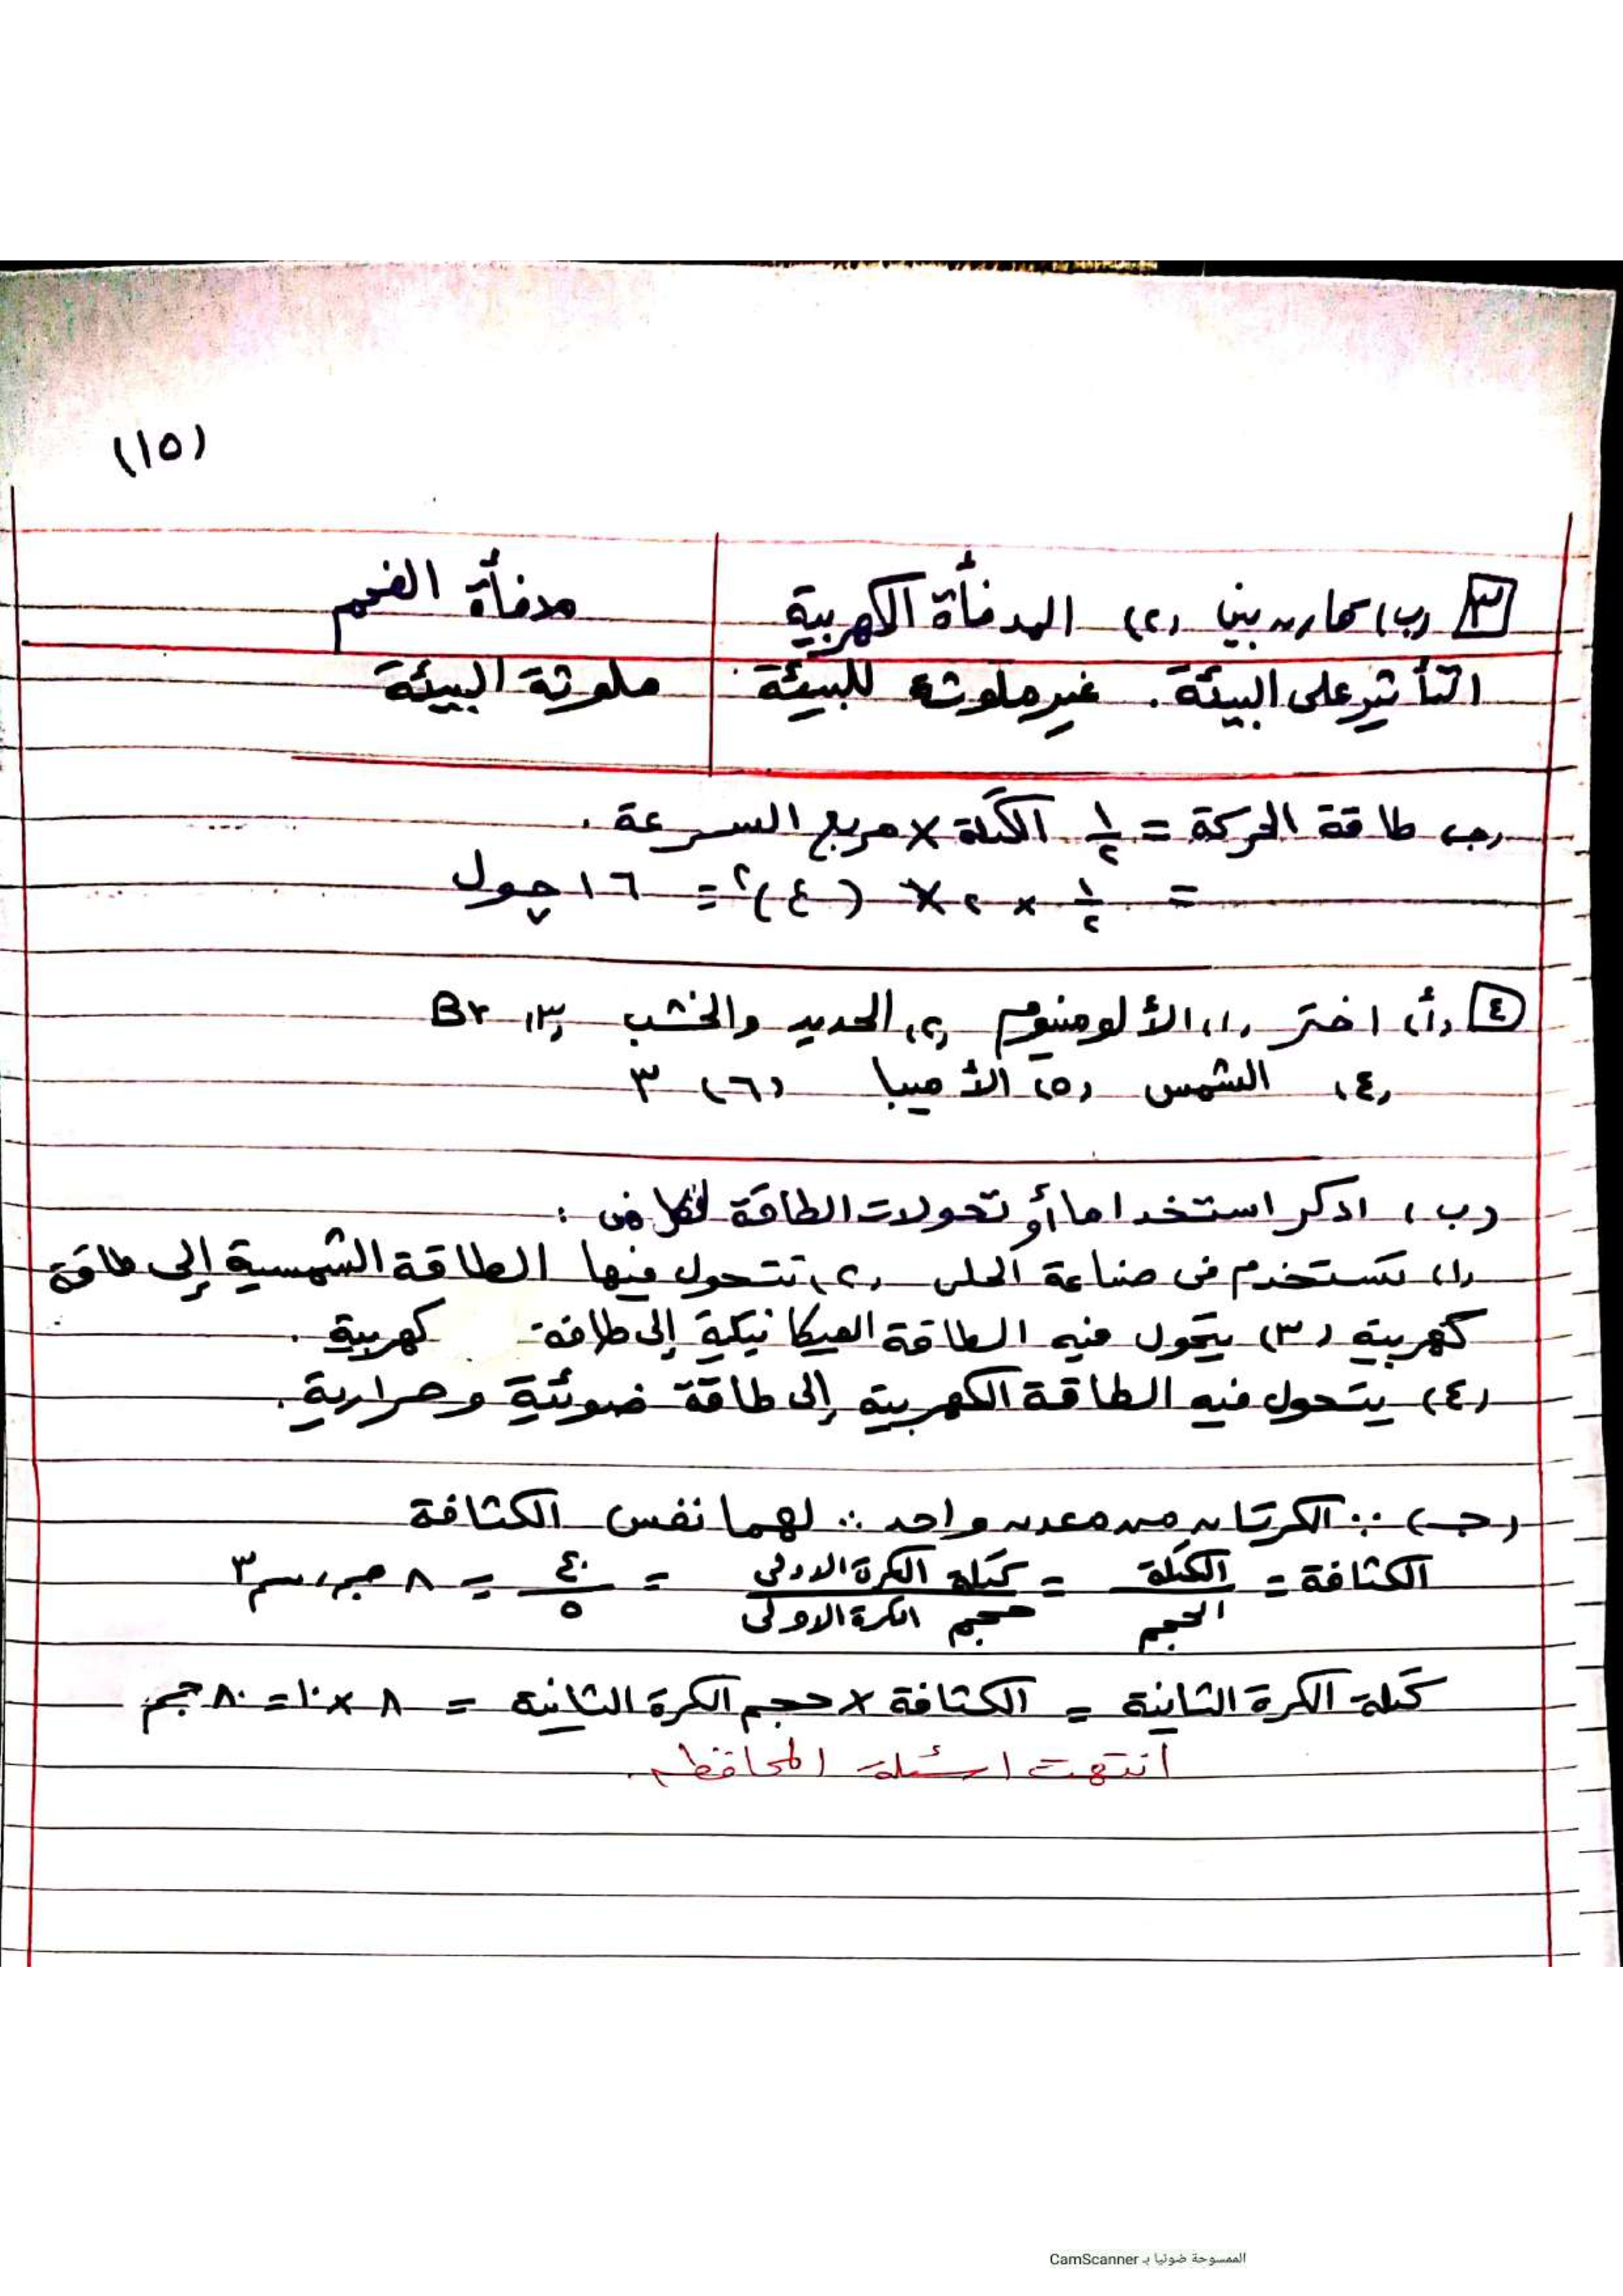 (١٥)
٣ (ب) قارن بين (٢) المدفأة الكهربية مدفأة الفحم
التأثير على البيئة. غير ملوثة للبيئة ملوثة البيئة
(جـ) طاقة الحركة = ١/٢ الكتلة × مربع السرعة .
= ١/٢ × ٢ × (٤)٢ = ١٦ چول
٤ (أ) اختر (١) الألومنيوم (٢) الحديد والخشب (٣) Br
(٤) الشمس (٥) الأميبا (٦) ٣
(ب) اذكر استخداما أو تحولات الطاقة لكل من :
(١) تستخدم فى صناعة الحلى (٢) تتحول فيها الطاقة الشمسية إلى طاقة
كهربية (٣) يتحول فيه الطاقة الميكانيكية إلى طاقة كهربية .
(٤) يتحول فيه الطاقة الكهربية إلى طاقة ضوئية وحرارية .
(جـ) ∵ الكرتان من معدن واحد ∴ لهما نفس الكثافة
الكثافة = الكتلة / الحجم = كتلة الكرة الاولى / حجم الكرة الاولى = ٤٠ / ٥ = ٨ جم/سم٣
كتلة الكرة الثانية = الكثافة × حجم الكرة الثانية = ٨ × ١٠ = ٨٠ جم
انتهت اسئلة المحافظة .
الممسوحة ضوئيا بـ CamScanner